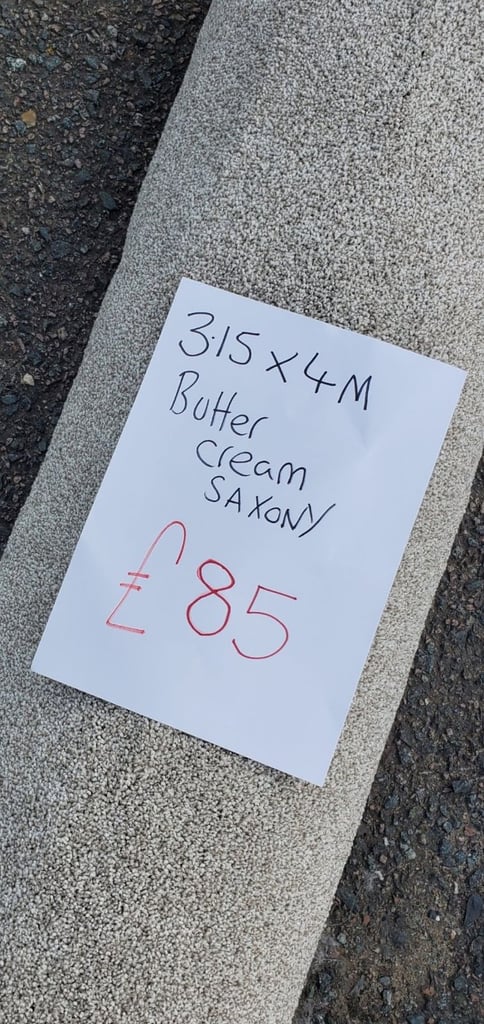 3.15 x 4M
Butter
cream
SAXONY
£85